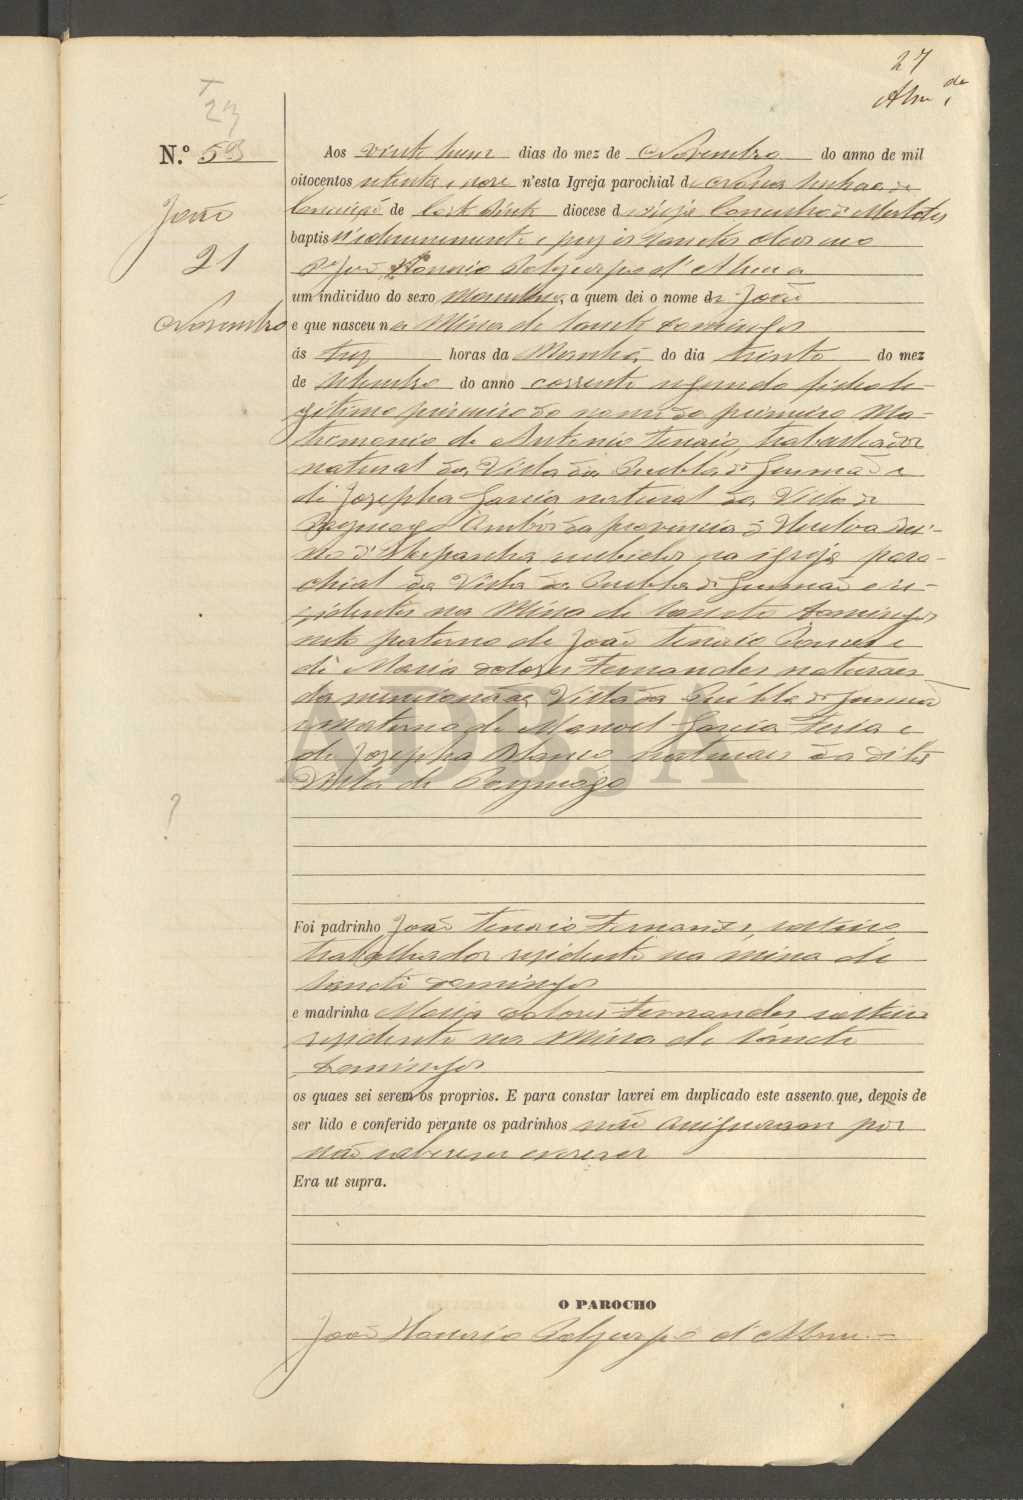 27
Alm.da
23
N.º 53
João
21
Novembro
Aos vinte hum dias do mez de Novembro do anno de mil
oitocentos setenta e nove n'esta Igreja parochial de Nossa Senhora da
Conceição de diocese de Beja Concelho de Mertola
baptisei solemnemente e puz os Sanctos oleos eu o
João Honorio d'
um individuo do sexo Masculino, a quem dei o nome de João
e que nasceu na Mina de Sancto Domingos
ás tres horas da Manhã do dia trinta do mez
de Setembro do anno corrente segundo filho le-
gitimo primeiro do nome do primeiro Ma-
tremonio de Antonio Tenorio, trabalhador
natural da Villa da Puebla de Gusmão e
de Josepha Garcia natural da Villa de
Paymogo Ambos da provincia de Huelva Rei-
no d'Hespanha recebidos na igreja paro-
chial da Villa da Puebla de Gusmão e re-
sidentes na Mina de Sancto Domingos
neto paterno de João Tenorio e
de Maria Dolores Fernandes naturaes
da mencionada Villa da Puebla de Gusmão
e Materno de Manoel Garcia Feria e
de Josepha Blanco naturaes da dita
Villa de Paymogo
?
Foi padrinho João Tenorio Fernandes, solteiro
trabalhador residente na mina de
Sancto Domingos
e madrinha Maria Dolores Fernandes solteira
residente na Mina de Sancto
Domingos
os quaes sei serem os proprios. E para constar lavrei em duplicado este assento que, depois de
ser lido e conferido perante os padrinhos não assignaram por
não saberem escrever
Era ut supra.
O PAROCHO
João Honorio d'
ADBJA